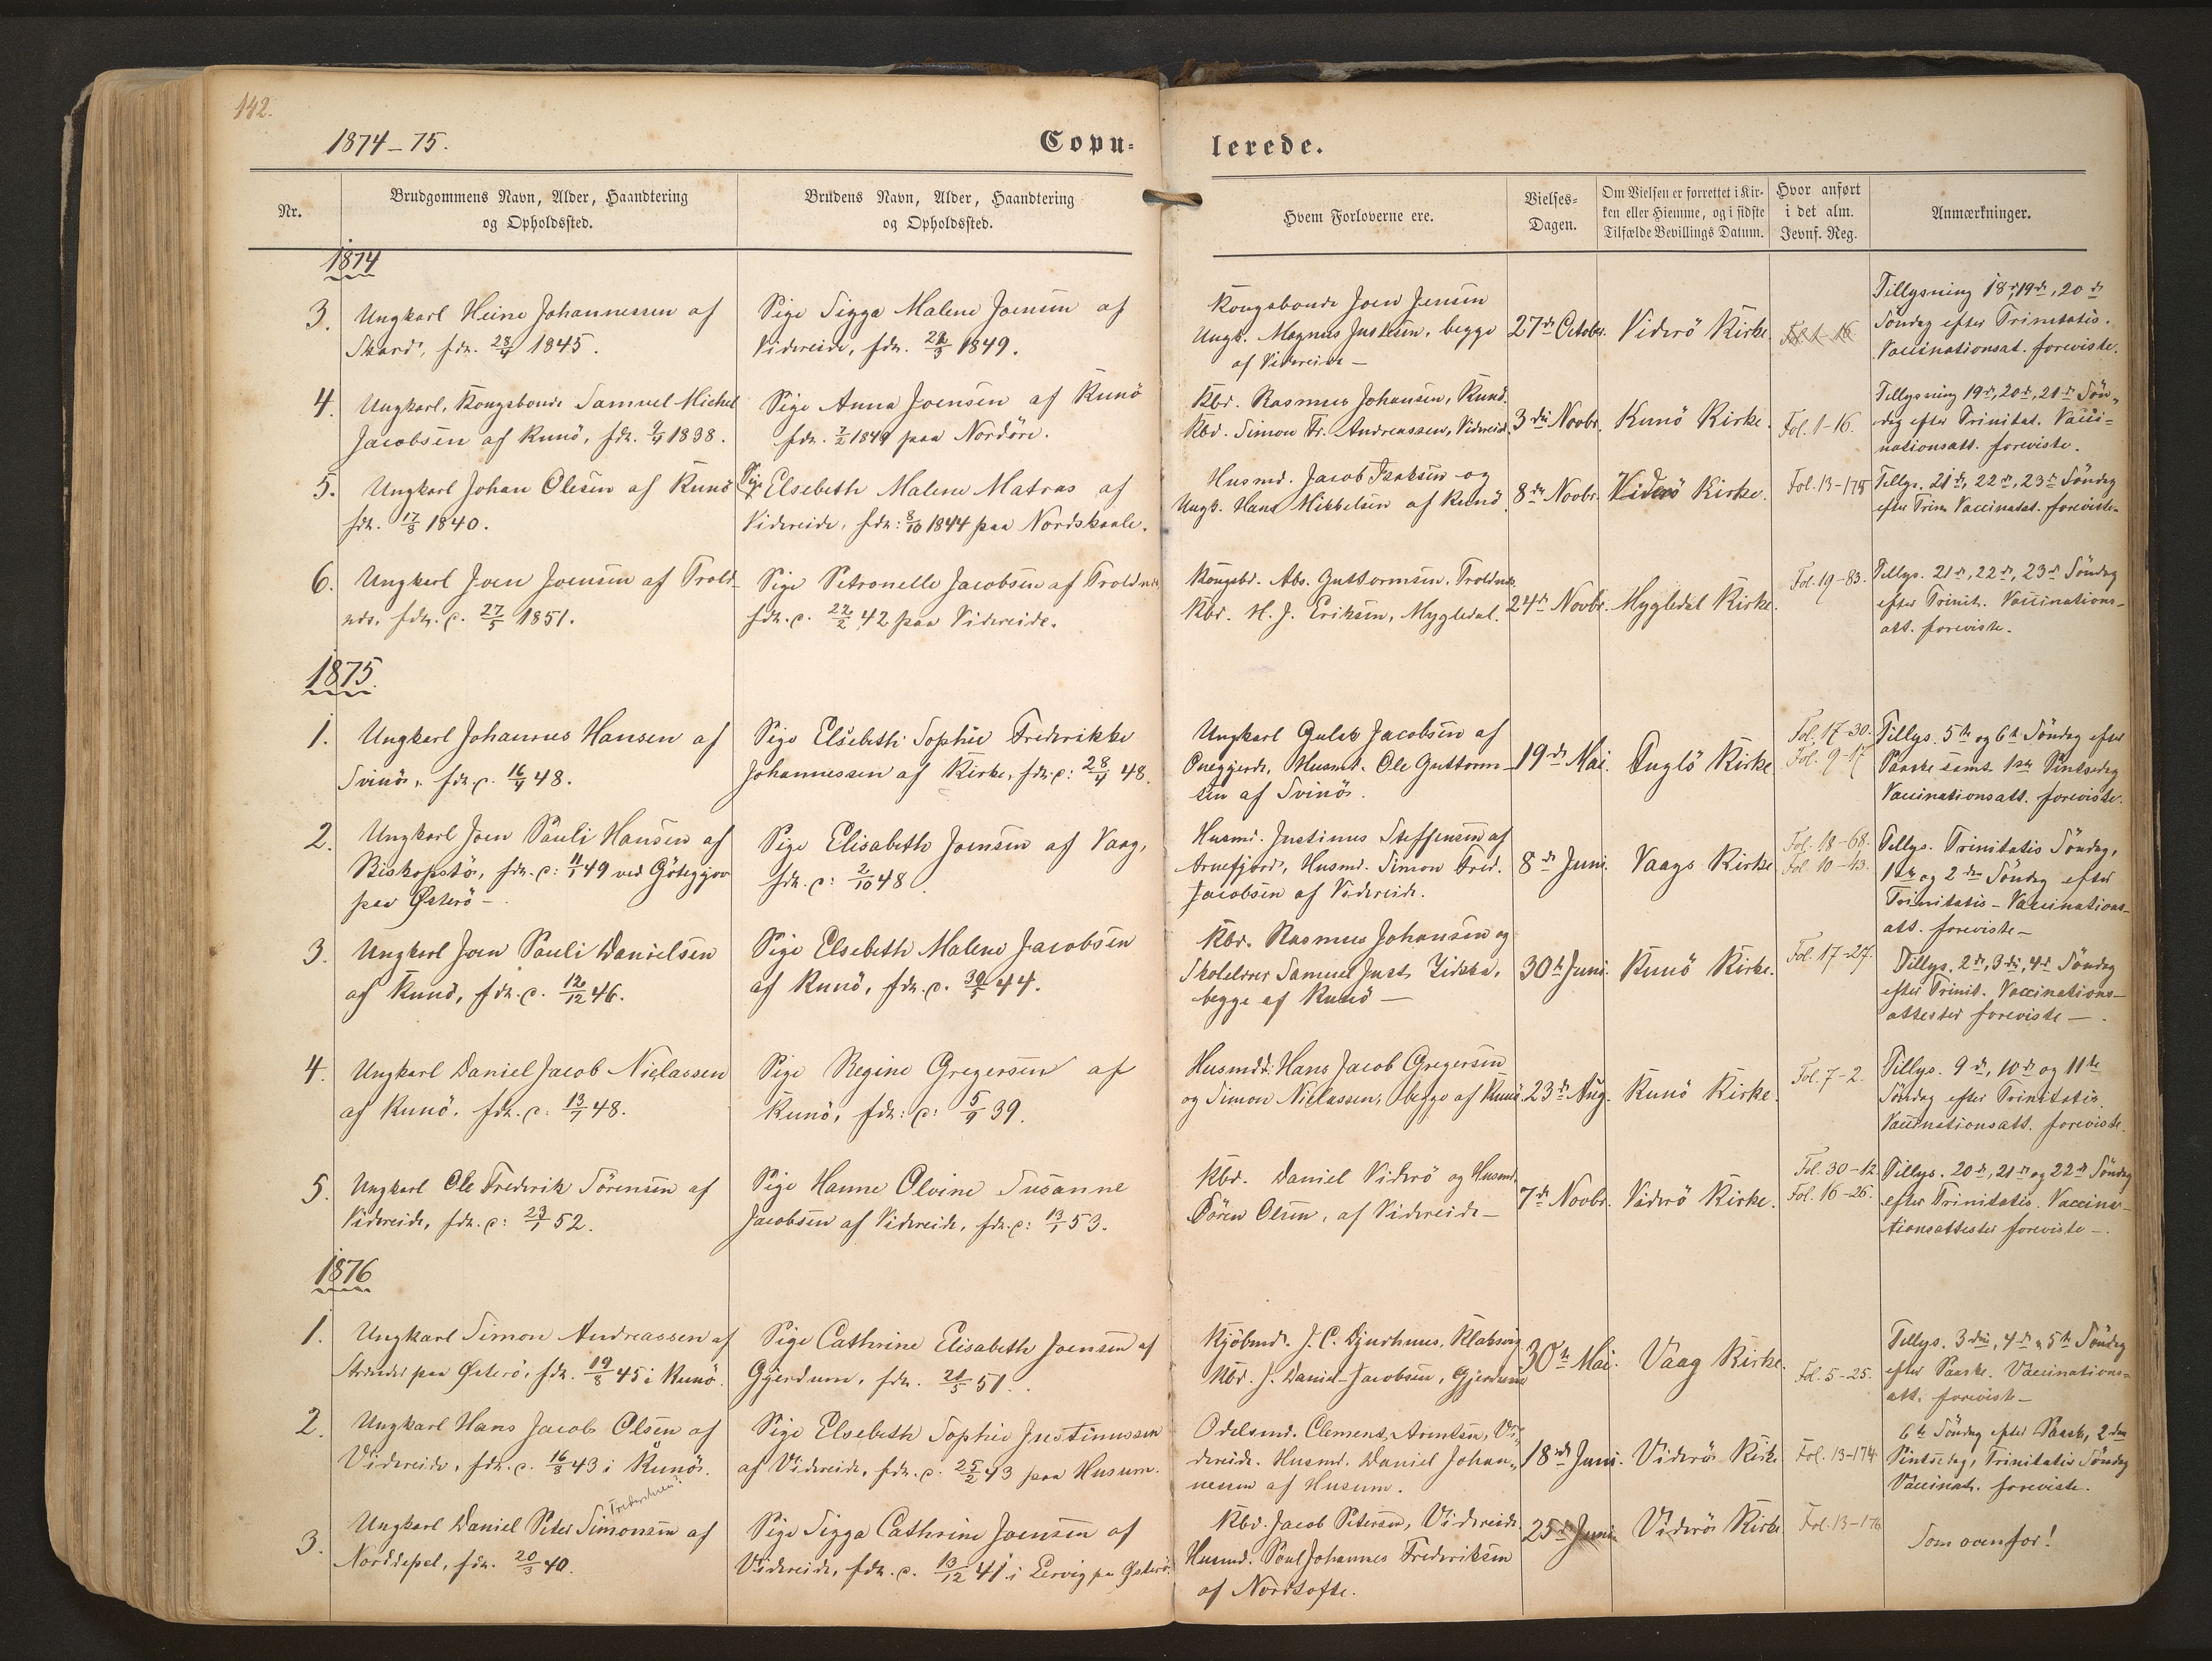 142.
1874-75.
Copu-
lerede.
Nr.
Brudgommens Navn, Alder, Haandtering
og Opholdssted.
Brudens Navn, Alder, Haandtering
og Opholdssted.
Hvem Forloverne ere.
Vielses-
Dagen.
Om Vielsen er forrettet i Kir-
ken eller Hiemme, og i sidste
Tilfælde Bevillings Datum.
Hvor anført
i det alm.
Jevnf. Reg.
Anmærkninger.
1874
3.
Ungkarl Heine Johannessen af
Skard, fdt. 23/4 1845.
Pige Sigga Malene Joensen af
Videreide, fdt. 1849.
Kongsbonde Joen Jensen
Ungk. Magnus Justesen, begge
af Videreide —
27de October.
Viderö Kirke.
Tillysning 18de, 19de, 20de
Söndag efter Trinitatis.
Vaccinationsat. foreviste.
4.
Ungkarl, Kongsbonde Samuel Michel
Jacobsen af Kunö, fdt. 9/4 1838.
Pige Anna Joensen af Kunö
fdt. 7/2 1849 paa Nordöre.
Kbd. Rasmus Johansen, Kunö.
Kbd. Simon Fr. Andreassen, Videreide.
3die Novbr.
Kunö Kirke.
Fol. 1-16.
Tillysning 19de, 20de, 21de Sön-
dag efter Trinitat. Vacci-
nationsatt. foreviste.
5.
Ungkarl Johan Olesen af Kunö
fdt. 17/8 1840.
Pige Elsebeth Malene Matras af
Videreide, fdt: 8/10 1844 paa Nordskaale.
Husmd. Jacob Isaksen og
Ungk. Hans Mikkelsen af Kunö.
8de Novbr.
Viderö Kirke.
Fol. 13-175
Tillys. 21de, 22de, 23de Söndag
efter Trin. Vaccinatat. foreviste.
6.
Ungkarl Joen Joensen af Trold-
næs, fdt. c. 27/5 1851.
Pige Petronelle Jacobsen af Troldnæs,
fdt. c. 22/2 42 paa Videreide.
Kongsbd. Abs. Guttormsen, Troldnæs.
Kbd. H. J. Eriksen, Mygledal.
24de Novbr.
Mygledal Kirke.
Fol. 19-83.
Tillys. 21de, 22de, 23de Söndag
efter Trinit. Vaccinations-
att. foreviste.
1875.
1.
Ungkarl Johannes Hansen af
Svinö, fdt. c. 16/4 48.
Pige Elsebeth Sophie Frederikke
Johannessen af Kirke, fdt. c: 28/4 48.
Ungkarl Guleb Jacobsen af
Husmd. Ole Guttorm-
sen af Svinö.
19de Mai.
Fuglö Kirke
Fol. 17-30.
Fol. 9-17
Tillys. 5te og 6te Söndag efter
Paaske samt 1ste Pintsedag
Vaccinationsatt. foreviste.
2.
Ungkarl Joen Pauli Hansen af
Biskopstö, fdt. c: 11/1 49 ved Götegjov
paa Österö —
Pige Elisabeth Joensen af Vaag,
fdt. c: 2/10 48.
Husmd. Justinus Steffensen af
Arnefjord, Husmd. Simon Fred.
Jacobsen af Videreide.
8de Juni.
Vaags Kirke
Fol. 18-68.
Fol. 10-43.
Tillys. Trinitatis Söndag,
1ste og 2den Söndag efter
Trinitatis — Vaccinations-
att. foreviste —
3.
Ungkarl Joen Pauli Danielsen
af Kunö, fdt. c. 12/12 46.
Pige Elsebeth Malene Jacobsen
af Kunö, fdt. c. 30/5 44.
Kbd. Rasmus Johansen og
Skolelærer Samuel Just Zidska,
begge af Kunö —
30te Juni.
Kunö Kirke.
Fol. 17-27.
Tillys. 2den, 3die, 4de Söndag
efter Trinit. Vaccinations-
attester foreviste —.
4.
Ungkarl Daniel Jacob Niclassen
af Kunö, fdt. c: 13/1 48.
Pige Regine Gregersen af
Kunö, fdt: c: 5/9 39.
Husmdd. Hans Jacob Gregersen
og Simon Niclassen, begge af Kunö.
23de Aug.
Kunö Kirke.
Fol. 7-2.
Tillys. 9de, 10de og 11te
Söndag efter Trinitatis.
Vaccinationsatt. foreviste.
5.
Ungkarl Ole Frederik Sörensen af
Videreide, fdt. c: 23/1 52.
Pige Hanne Olvine Susanne
Jacobsen af Videreide, fdt. c: 13/1 53.
Kbd. Daniel Viderö og Husmd.
Sören Olsen, af Videreide —
7de Novbr.
Viderö Kirke.
Fol. 30-12
Fol. 16-26.
Tillys. 20de, 21de og 22de Söndag
efter Trinitatis. Vaccina-
tionsattester foreviste —.
1876
1.
Ungkarl Simon Andreassen af
Strender paa Österö, fdt. 19/8 45 i Kunö.
Pige Cathrine Elisabeth Joensen af
Gjerdum, fdt. 21/5 51.
Kjöbmd. J. C. Djurhuus, Klaksvig
Kbd. J. Daniel Jacobsen, Gjerdum
30te Mai.
Vaag Kirke.
Fol. 5-25.
Tillys. 3die, 4de, 5te Söndag
efter Paaske. Vaccinations-
att. foreviste —
2.
Ungkarl Hans Jacob Olsen af
Videreide, fdt. c. 16/8 43 i Kunö.
Pige Elsebeth Sophie Justinussen
af Videreide, fdt. c. 25/2 43 paa Husum.
Odelsmd. Clement Arentsen, Vi-
dereide. Husmd. Daniel Johan-
nesen af Husum.
18de Juni.
Viderö Kirke
Fol. 13-174
6te Söndag efter Paaske, 2den
Pintsedag, Trinitatis Söndag
Vaccinat. foreviste.
3.
Ungkarl Daniel Peter Simonsen af
Norddepel, fdt. 20/3 40.
Pige Sigga Cathrine Joensen af
Videreide, fdt. c. 13/12 41 i Lervig paa Österö.
Kbd. Jacob Petersen, Videreide
Husmd. Poul Johannes Frederiksen
af Nordtofte.
25de Juni
Viderö Kirke
Fol. 13-176
Som ovenfor!